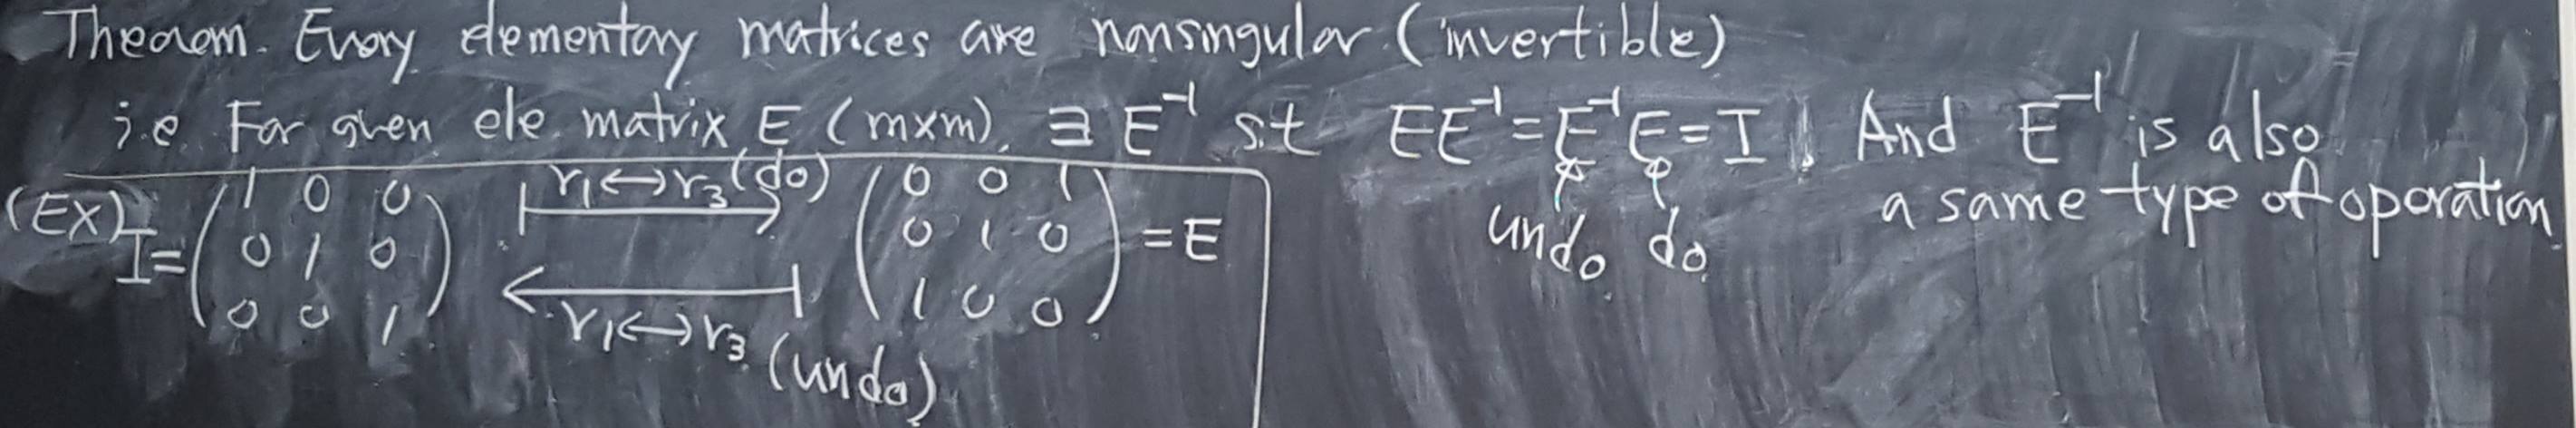 Theorem. Every elementary matrices are nonsingular (invertible)
i.e. For given ele. matrix E (m×m), ∃ E⁻¹ s.t EE⁻¹=E⁻¹E=I. And E⁻¹ is also
a same type of operation
undo do
(EX)
I=(1 0 0
0 1 0
0 0 1)
r₁↔r₃ (do)
r₁↔r₃ (undo)
(0 0 1
0 1 0
1 0 0) =E